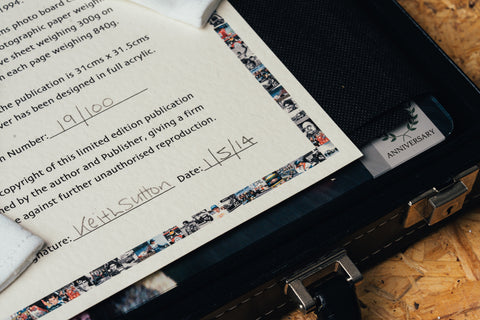 1994.
ms photo board
otographic paper weight
ve sheet weighing 300g on
n each page weighing 840g.
he publication is 31cms x 31.5cms
ver has been designed in full acrylic.
n Number: 19/100
copyright of this limited edition publication
ned by the author and Publisher, giving a firm
e against further unauthorised reproduction.
nature: Keith Sutton Date: 1/5/14
ANNIVERSARY